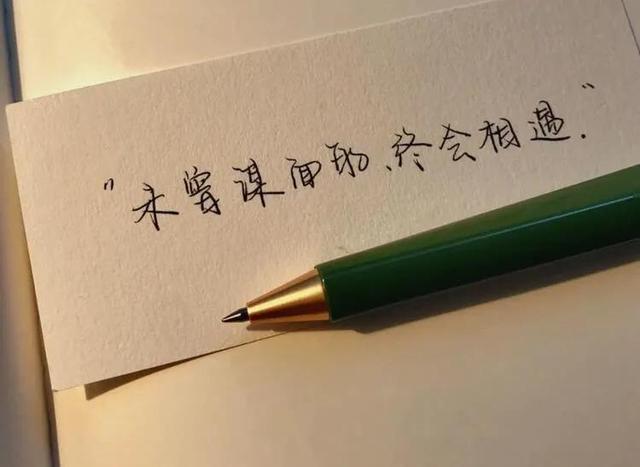 "未曾谋面的、终会相遇."